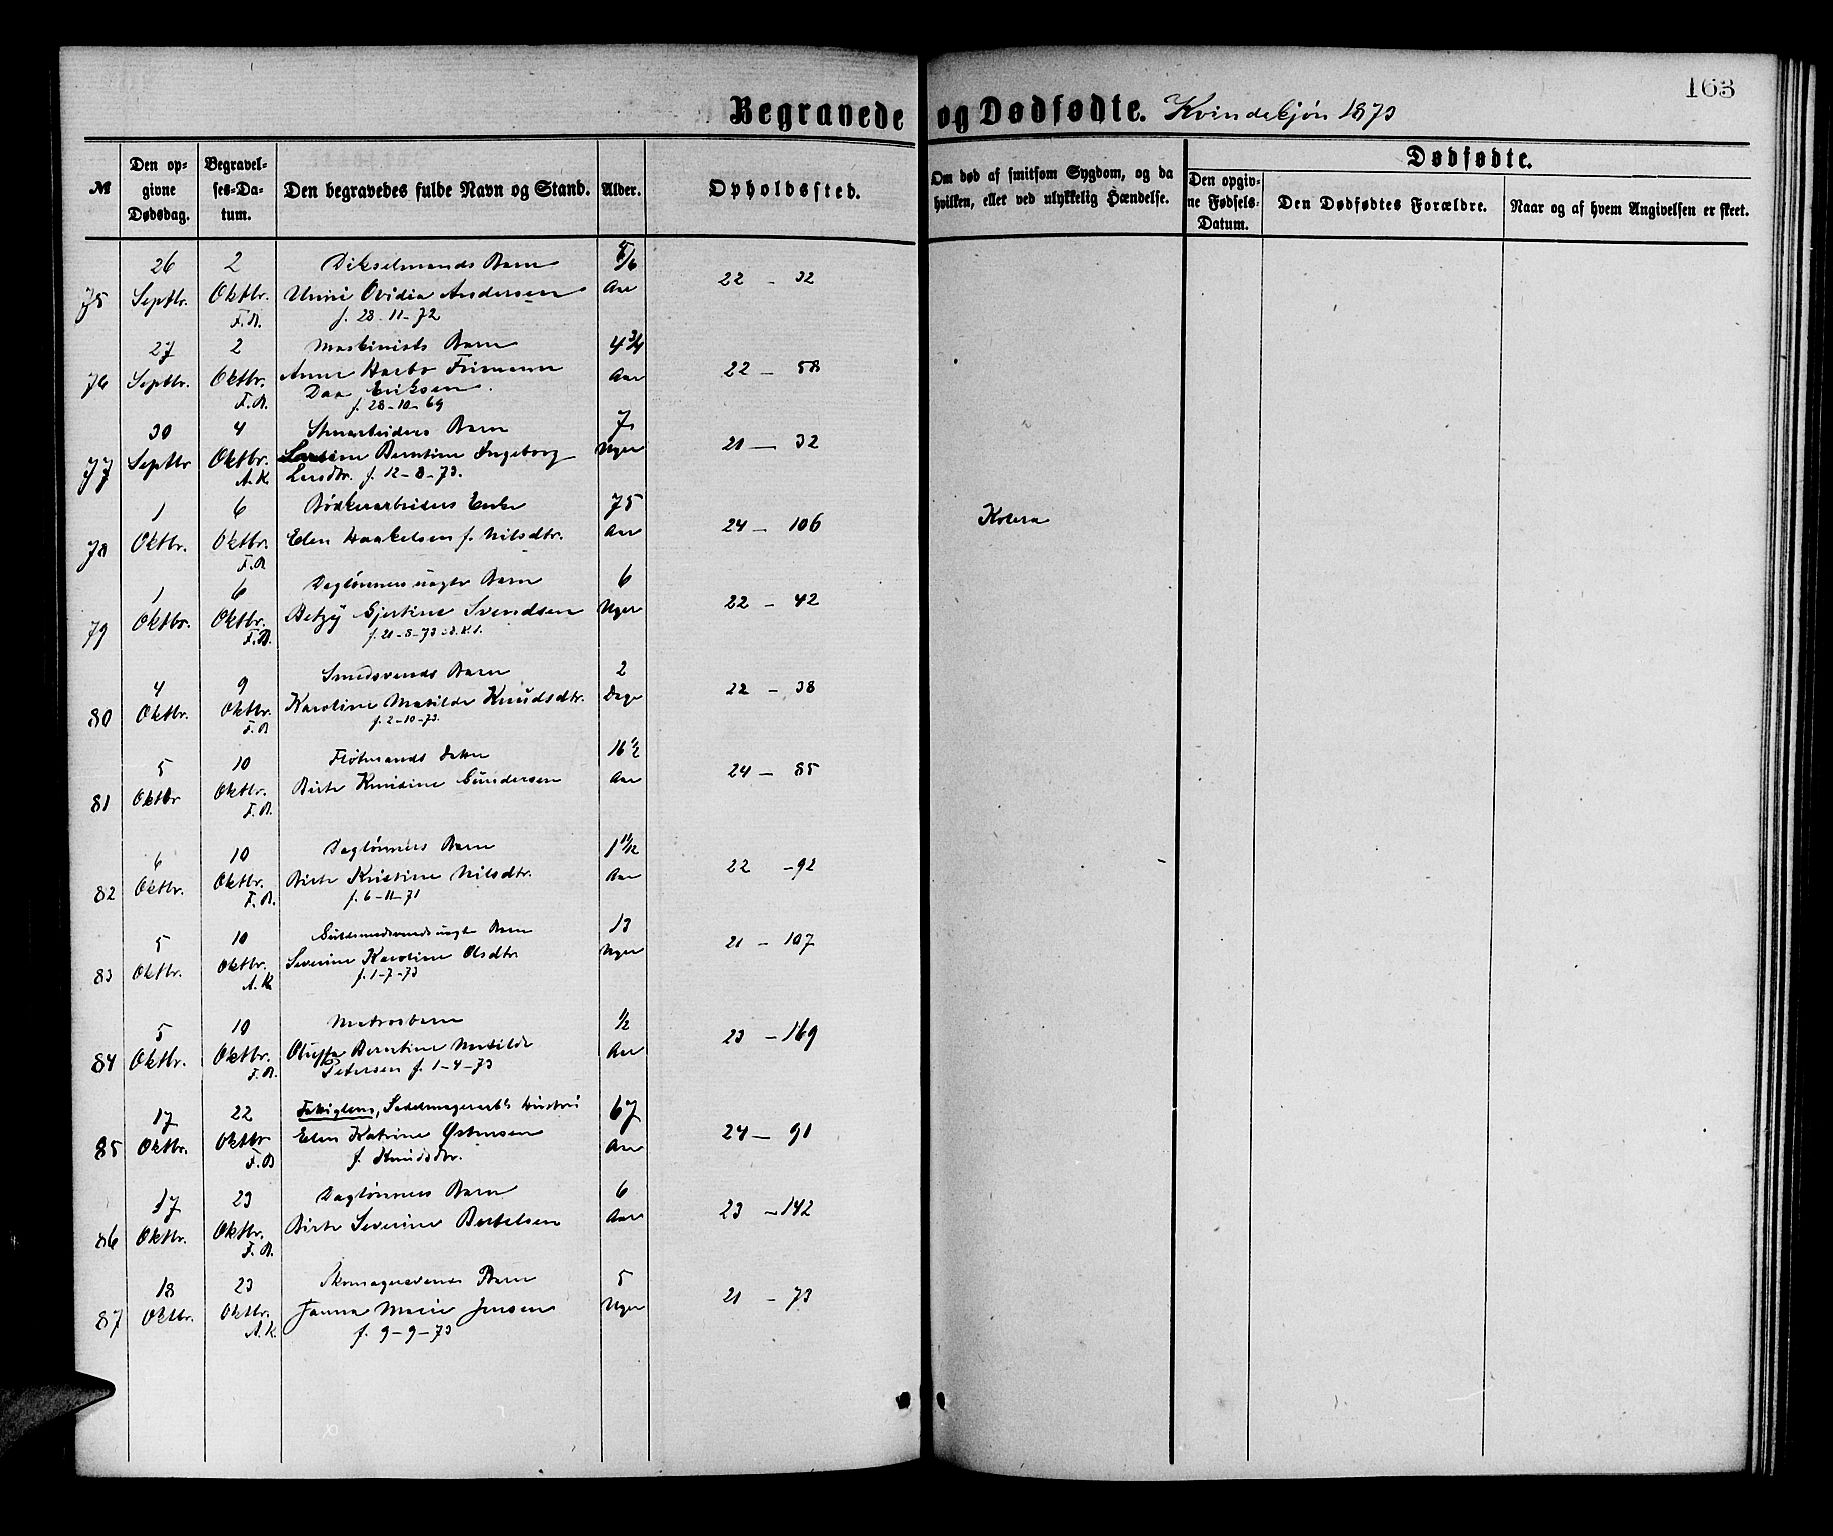 163
Begravede og Dødfødte. Kvindekjøn 1873
№
Den opgivne Dødsdag.
Begravelses-Datum.
Den begravedes fulde Navn og Stand.
Alder.
Opholdssted.
Om død af smitsom Sygdom, og da hvilken, eller ved ulykkelig Hændelse.
Dødfødte.
Den opgivne Fødsels-Datum.
Den Dødfødtes Forældre.
Naar og af hvem Angivelsen er skeet.
26 2 Barn 5/6
75 Septbr. Oktbr. Ovidia Andersen Aar 22 - 32
F.B. f. 28-11-72
27 2 Maskinists Barn 4 3/4
76 Septbr. Oktbr. Anna Aar 22 - 58
F.B. Daa Eriksen.
f. 28-10-69
30 4 Stenarbeiders Barn 7
77 Septbr Oktbr. Berntine Ingeborg Uger 21 - 32
A.K. Larsdtr. f. 12-8-73.
1 6 Bødkerarbeiders Enke 75
78 Oktbr. Oktbr. Elen Haakelsen f. Nilsdtr. Aar 24 - 106 Kolera
F.B.
1 6 Daglønners uægte Barn 6
79 Oktbr. Oktbr. Betzy Gjertine Svendsen Uger 22 - 42
F.B. f. 21-8-73
4 9 Smedsvends Barn 2
80 Oktbr. Oktbr. Karoline Matilde Knudsdtr. Dage 22 - 38
F.B f. 2-10-73.
5 10 Fløtmands Datter 16 1/2
81 Oktbr Oktbr. Birte Gundersen Aar 24 - 85
F.B.
6 10 Daglønners Barn 1 11/12
82 Oktbr. Oktbr. Birte Kristine Nilsdtr. Aar 22 - 92
F.B. f. 6-11-71
5 10 Guldsmedsvends uægte Barn 13
83 Oktbr. Oktbr. Severine Karoline Olsdtr Uger 21 - 107
A.K f. 1-7-73
5 10 Matrosbarn 1/2
84 Oktbr. Oktbr. Berntine Matilde Aar 23 - 169
F.B. Petersen f. 1-4-73
17 22 Fattiglem, Sadelmagerarb's Hustru 67
85 Oktbr. Oktbr Elen Katrine Østensen Aar 24 - 91
F.B f. Knudsdtr.
17 23 Daglønners Barn 6
86 Oktbr. Oktbr. Birte Severine Bertelsen Aar 23 - 142
F.B.
18 23 Skomagersvends Barn 5
87 Oktbr. Oktbr. Janna Marie Jensen Uger 21 - 73
A.K. f. 9-9-73